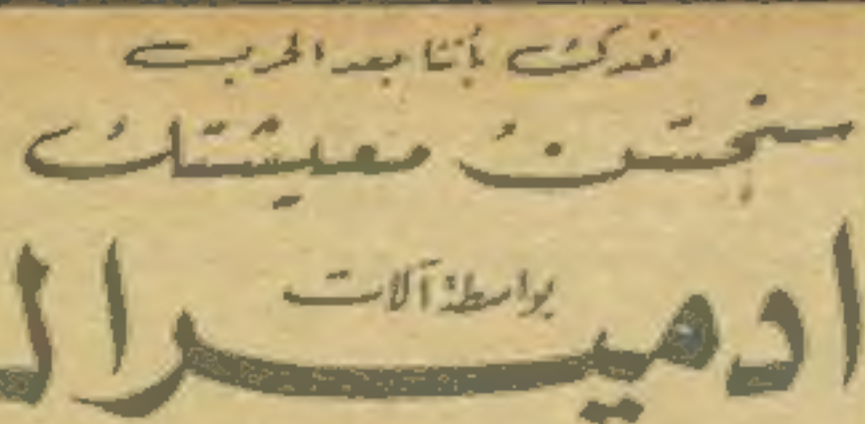 نعدك بأننا بعد الحرب
سنحسّن معيشتك
بواسطة آلات
ادميرال